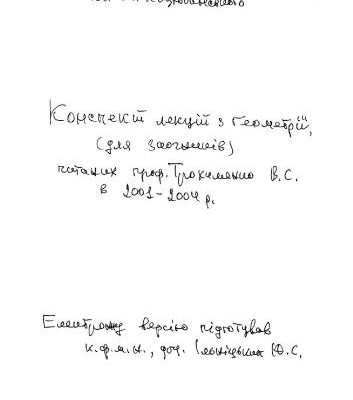 Конспект лекцій з геометрії,
(для заочників)
читаних проф. Трохименко В.С.
в 2001-2004 р.
Електронну версію підготував
к.ф.м.н., доц. Ю.С.